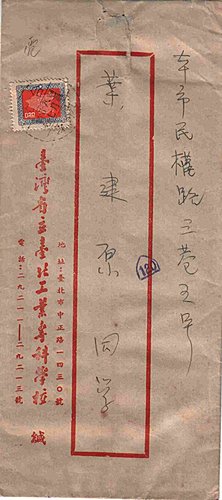 本市民權路三巷五号
葉建原同学
180
地址：臺北市中正路一四三〇號
臺灣省立臺北工業專科學校 緘
電話：二九二一一—二九二一三號